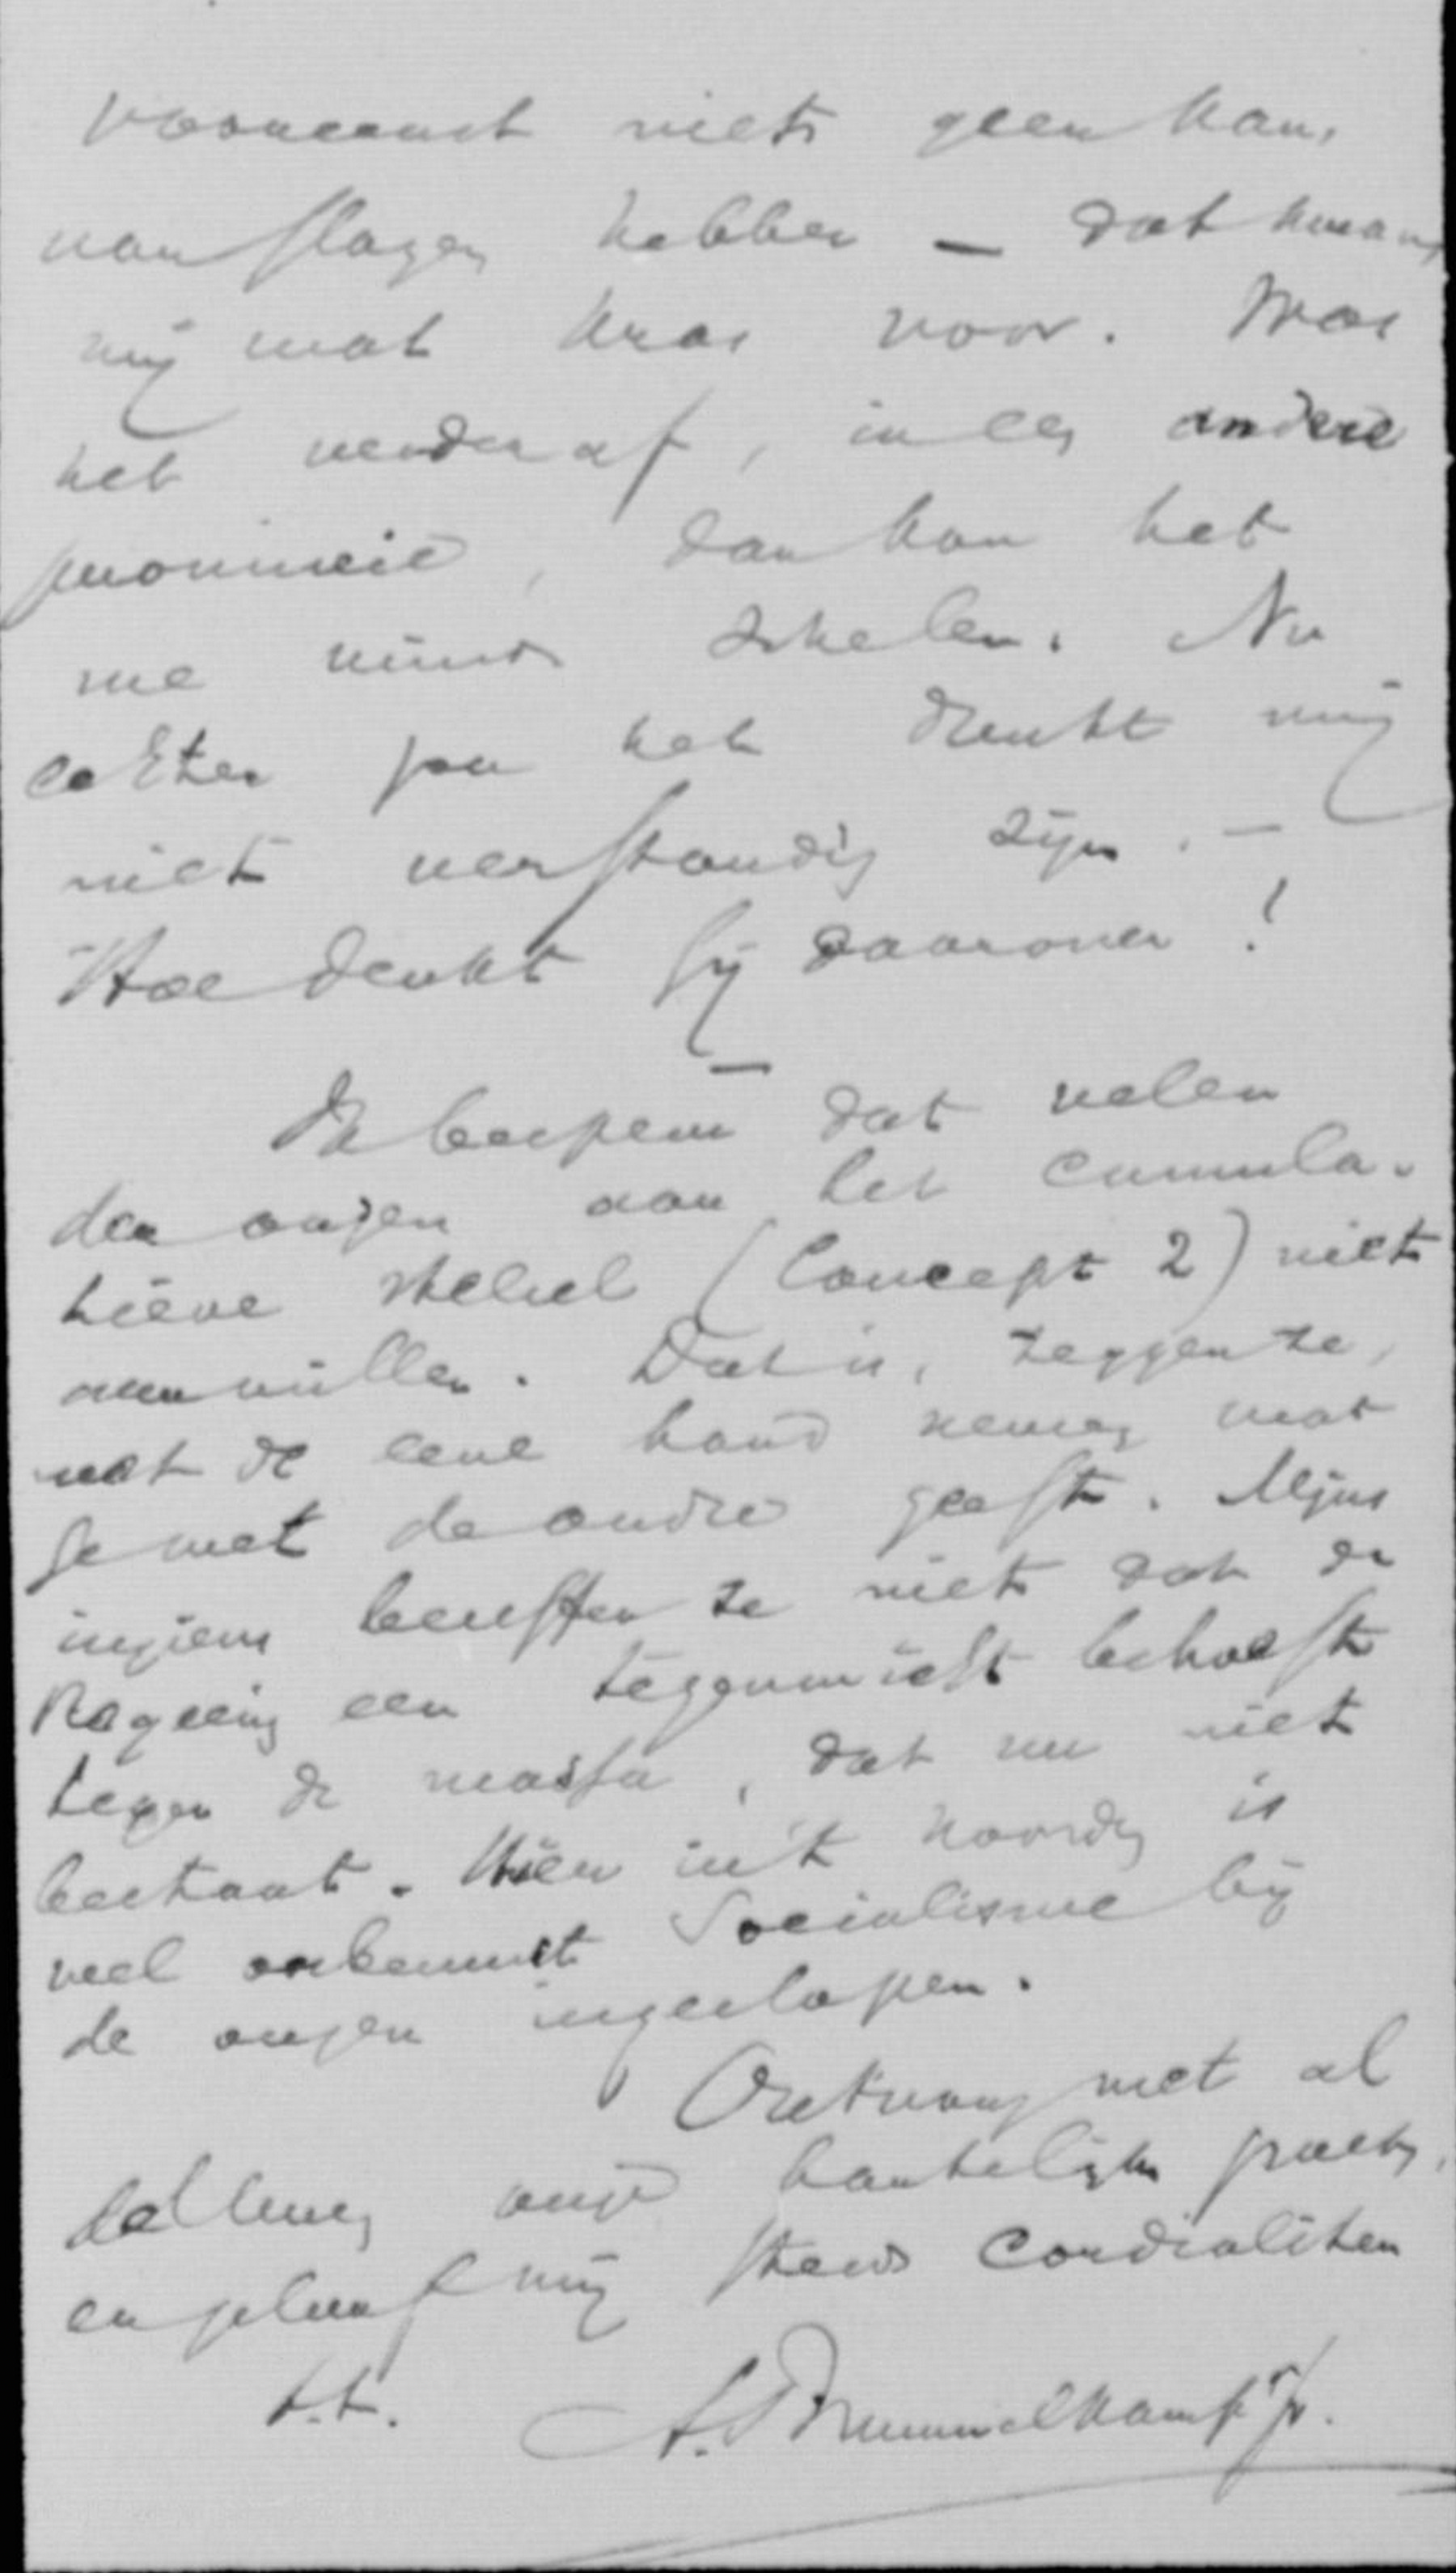 voorneemt niets geen kans
van slagen hebben — dat kwam
mij wat kras voor. Was
het verder af, in een andere
provincie, dan kon het
me niets schelen. Nu
echter zou het dunkt mij
niet verstandig zijn. —
Hoe denkt gij daarover?
—
Ik bespeur dat velen
der onzen aan het cumula-
tieve stelsel (Concept 2) niet
aan willen. Dat is, zeggen ze,
met de eene hand nemen wat
ge met de andre geeft. Mijns
inziens beseffen ze niet dat de
Regeering een tegenwicht behoeft
tegen de massa, dat nu niet
bestaat. Hier in 't Noorden is
veel onbewust Socialisme bij
de onzen ingeslopen.
Ontvang met al
onze hartelijke groeten,
en geloof mij steeds cordialiter
t.t. A. Brummelkamp Jr.